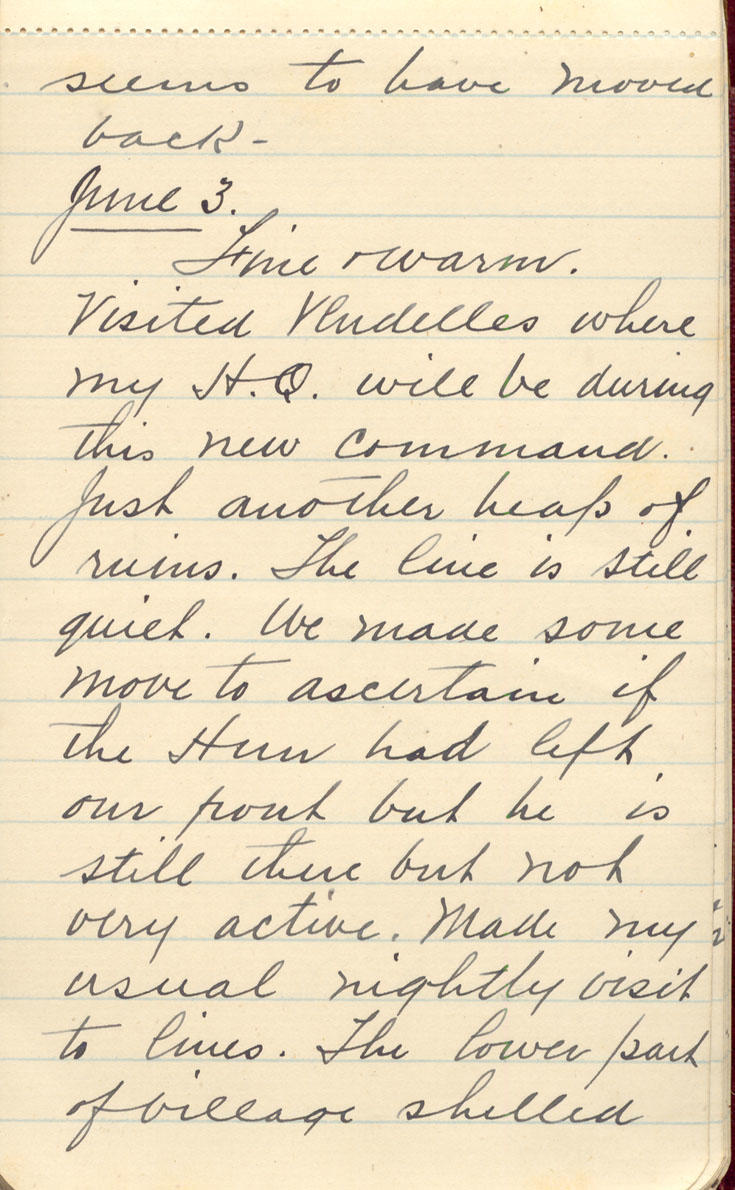 seems to have moved
back-
June 3.
Fine & warm.
Visited Vendelles where
my H.Q. will be during
this new command.
Just another heap of
ruins. The line is still
quiet. We made some
move to ascertain if
the Hun had left
our front but he is
still there but not
very active. Made my
usual nightly visit
to lines. The lower part
of village shelled